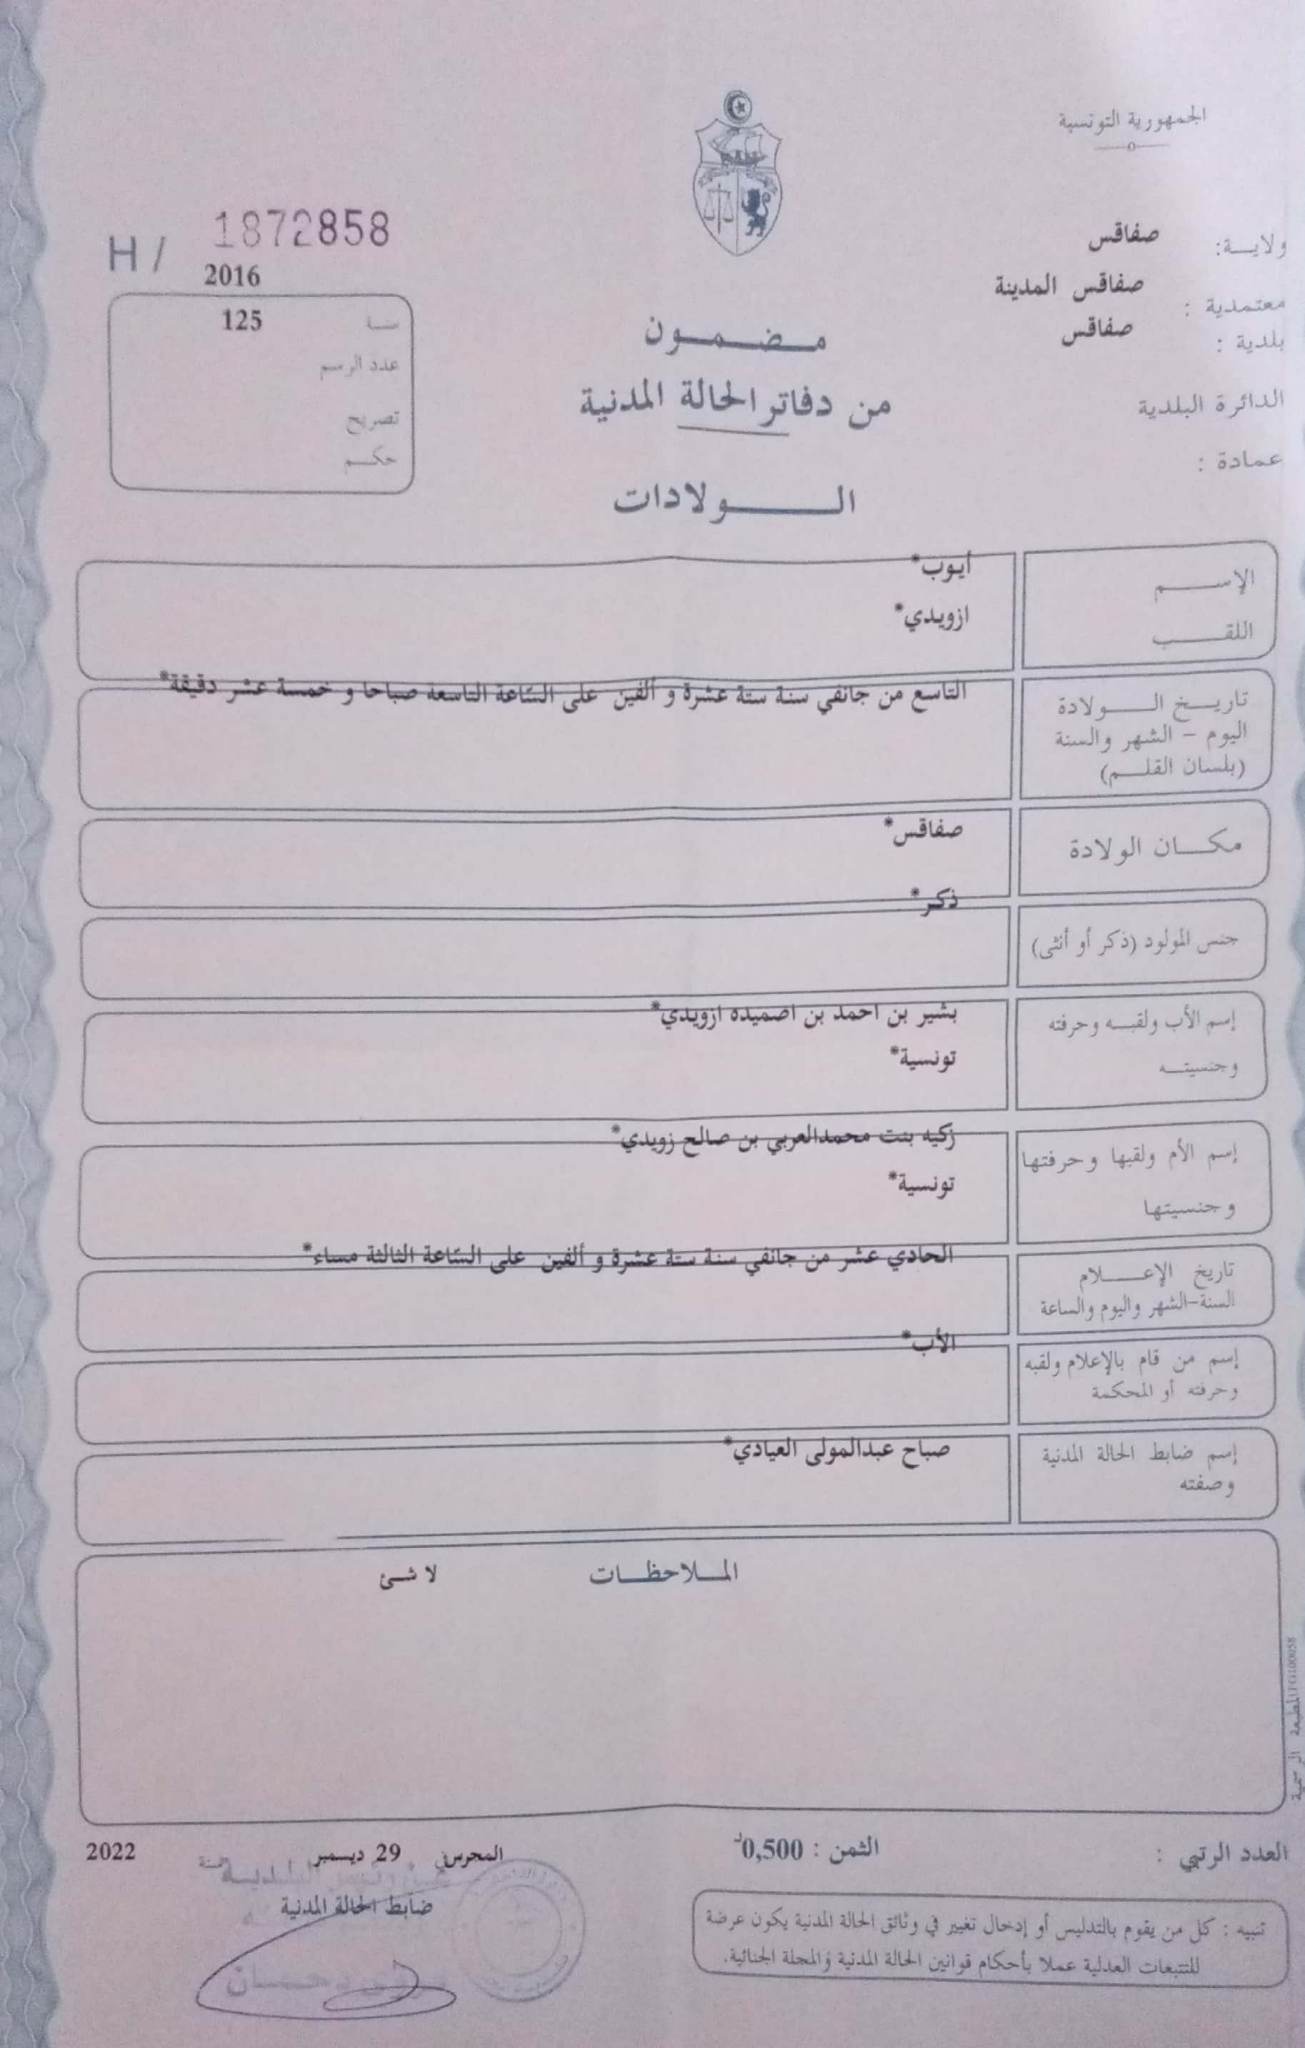 الجمهورية التونسية
ولايـــة: صفاقس
معتمدية : صفاقس المدينة
بلدية : صفاقس
الدائرة البلدية
عمادة :
H / 1872858
2016
سنة 125
عدد الرسم
تصريح
حكــم
مــضــمــون
من دفاتر الحالة المدنية
الــــولادات
الإســــم أيوب*
اللقـــب ازويدي*
تاريـــخ الـــولادة التاسع من جانفي سنة ستة عشرة و ألفين على السّاعة التاسعة صباحا و خمسة عشر دقيقة*
اليوم - الشهر والسنة
(بلسان القلــم)
مكـــان الولادة صفاقس*
جنس المولود (ذكر أو أنثى) ذكر*
إسم الأب ولقبــه وحرفته بشير بن احمد بن اصميده ازويدي*
وجنسيتــه تونسية*
إسم الأم ولقبها وحرفتها زكيه بنت محمدالعربي بن صالح زويدي*
وجنسيتها تونسية*
تاريخ الإعــــلام الحادي عشر من جانفي سنة ستة عشرة و ألفين على السّاعة الثالثة مساء*
السنة-الشهر واليوم والساعة
إسم من قام بالإعلام ولقبه الأب*
وحرفته أو المحكمة
إسم ضابط الحالة المدنية صباح عبدالمولى العيادي*
وصفته
المــلاحظــات لا شئ
المطبعة الرسمية
العدد الرتبي :
الثمن : 0,500د
المحرس في 29 ديسمبر سنة 2022
ضابط الحالة المدنية
تنبيه : كل من يقوم بالتدليس أو إدخال تغيير في وثائق الحالة المدنية يكون عرضة
للتتبعات العدلية عملا بأحكام قوانين الحالة المدنية والمجلة الجنائية.